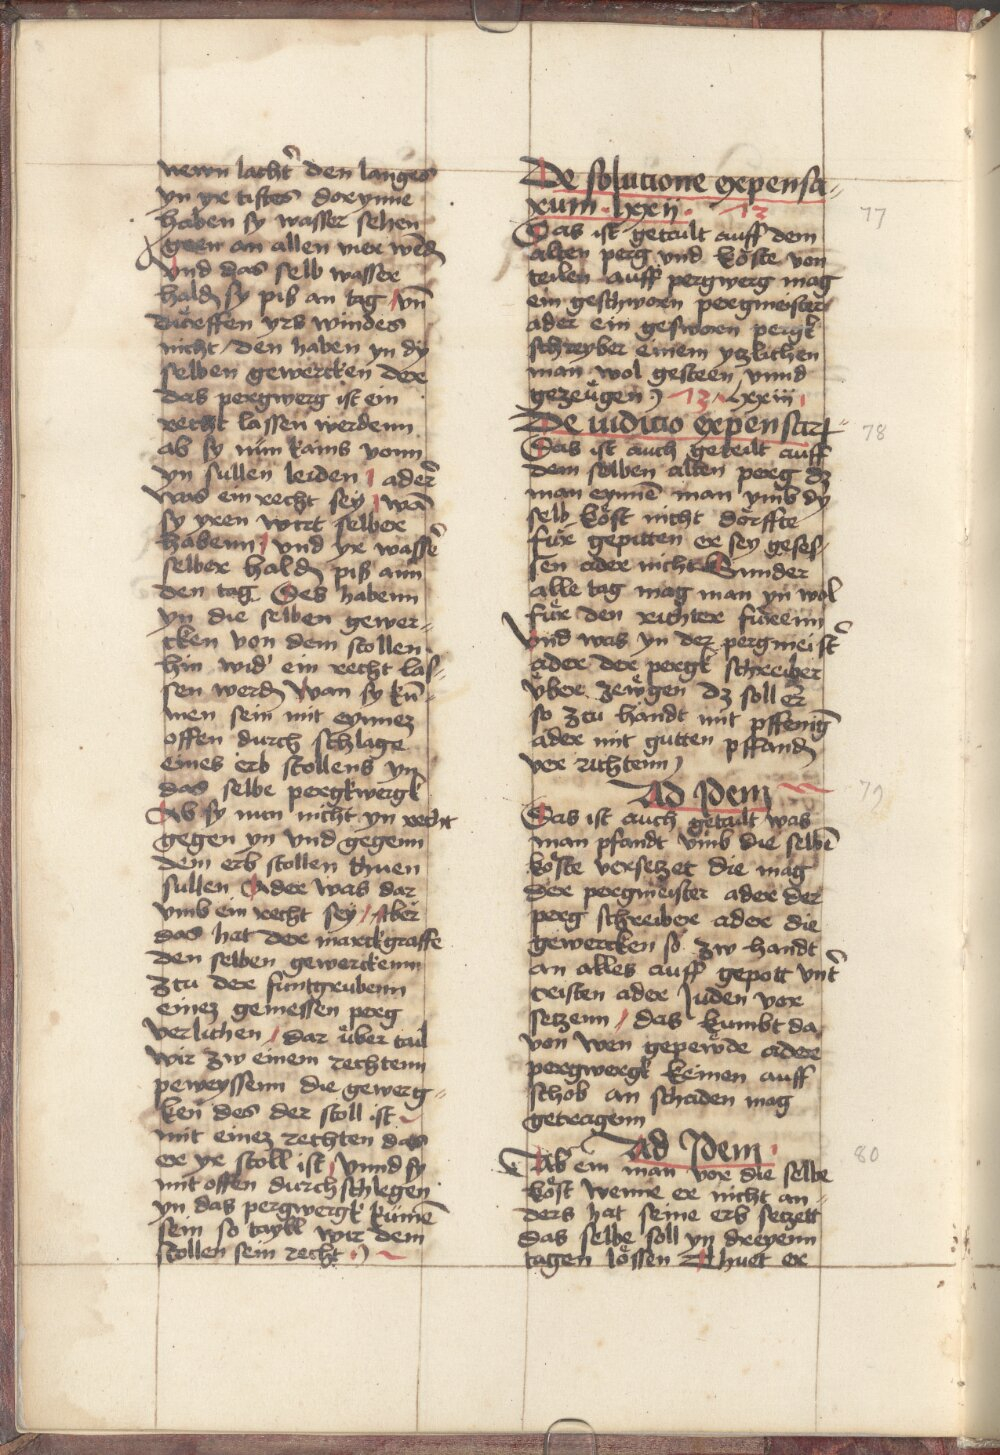 newn lachter den langes
yn yr tifftes dorynne
haben sy wasser sehen
geen an allen vier wēdn
Vnd das selb wasser
haldn sy piß an tag vn̄
dürffen yrs windes
nicht / den haben yn dy
selben gewercken der
das pergwerg ist ein
recht lassen werdenn
ab sy nün kains vonn
yn sullen leiden / ader
was ein recht sey / wā
sy yren wirt selber
habenn / vnd yr wasser
selber haldn piß ann
den tag Des habenn
yn die selben gewer-
cken von dem stollen
hin wid' ein recht las-
sen werdn Wan sy kū-
men sein mit eynnez
offen durch schlage
eines erb stollens yn
das selbe pergkwergk
Ab sy nun nicht yn recht
gegen yn vnd gegenn
dem erb stollen thuen
sullen Ader was dar
vmb ein recht sey / Aber
das hat der marckgraffe
den selben gewerckenn
ztu der funtgrubenn
einez gemessen perg
verlichen / dar über tail
wir zw einem rechtenn
peweyssenn die gewerg-
ken des der stoll ist
mit einez rechten das
er yr stoll ist / Vnnd sy
mit offen durchschlegen
yn das pergwergk kümē
sein so tayll wir dem
stollen sein recht
De solucione expensa-
rum lxxii. 13
77
Das ist getailt auff dem
alten perg vnd köste von
teilen auff pergwerg mag
ein geschworn pergmeister
ader ein gesworn pergk
schreyber einem yczlichen
man wol gesteen vnnd
gezeügen 13 lxxiii
De iudicio expensar
78
Das ist auch geteilt auff
dem selben alten perg dz
man eynnē man vmb dy
selb köst nicht dörffte
für gepitten er sey geses-
sen ader nicht Sunder
alle tag mag man yn wol
für den richter fürenn
Vnd was yn der pergmeister
ader der pergk schreiber
über zewgen dz soll er
so ztu handt mit pffenīg
ader mit gutten pffandn
ver richtenn
Ad Idem
79
Das ist auch getailt was
man pfandt vmb die selbē
köste versetzet die mag
der pergmeister ader der
perg schreiber ader die
gewercken so zw handt
an alles auff gepott vnter
cristen ader Juden ver
setzenn / das kumbt da
von wen gepewde ader
pergwergk keinen auff
schob an schaden mag
getragenn
Ad Idem
80
Ab ein man vor die selbe
köst wenne er nicht an-
ders hat seine erb setzett
das selbe soll yn dreyenn
tagen lössen Thuet er